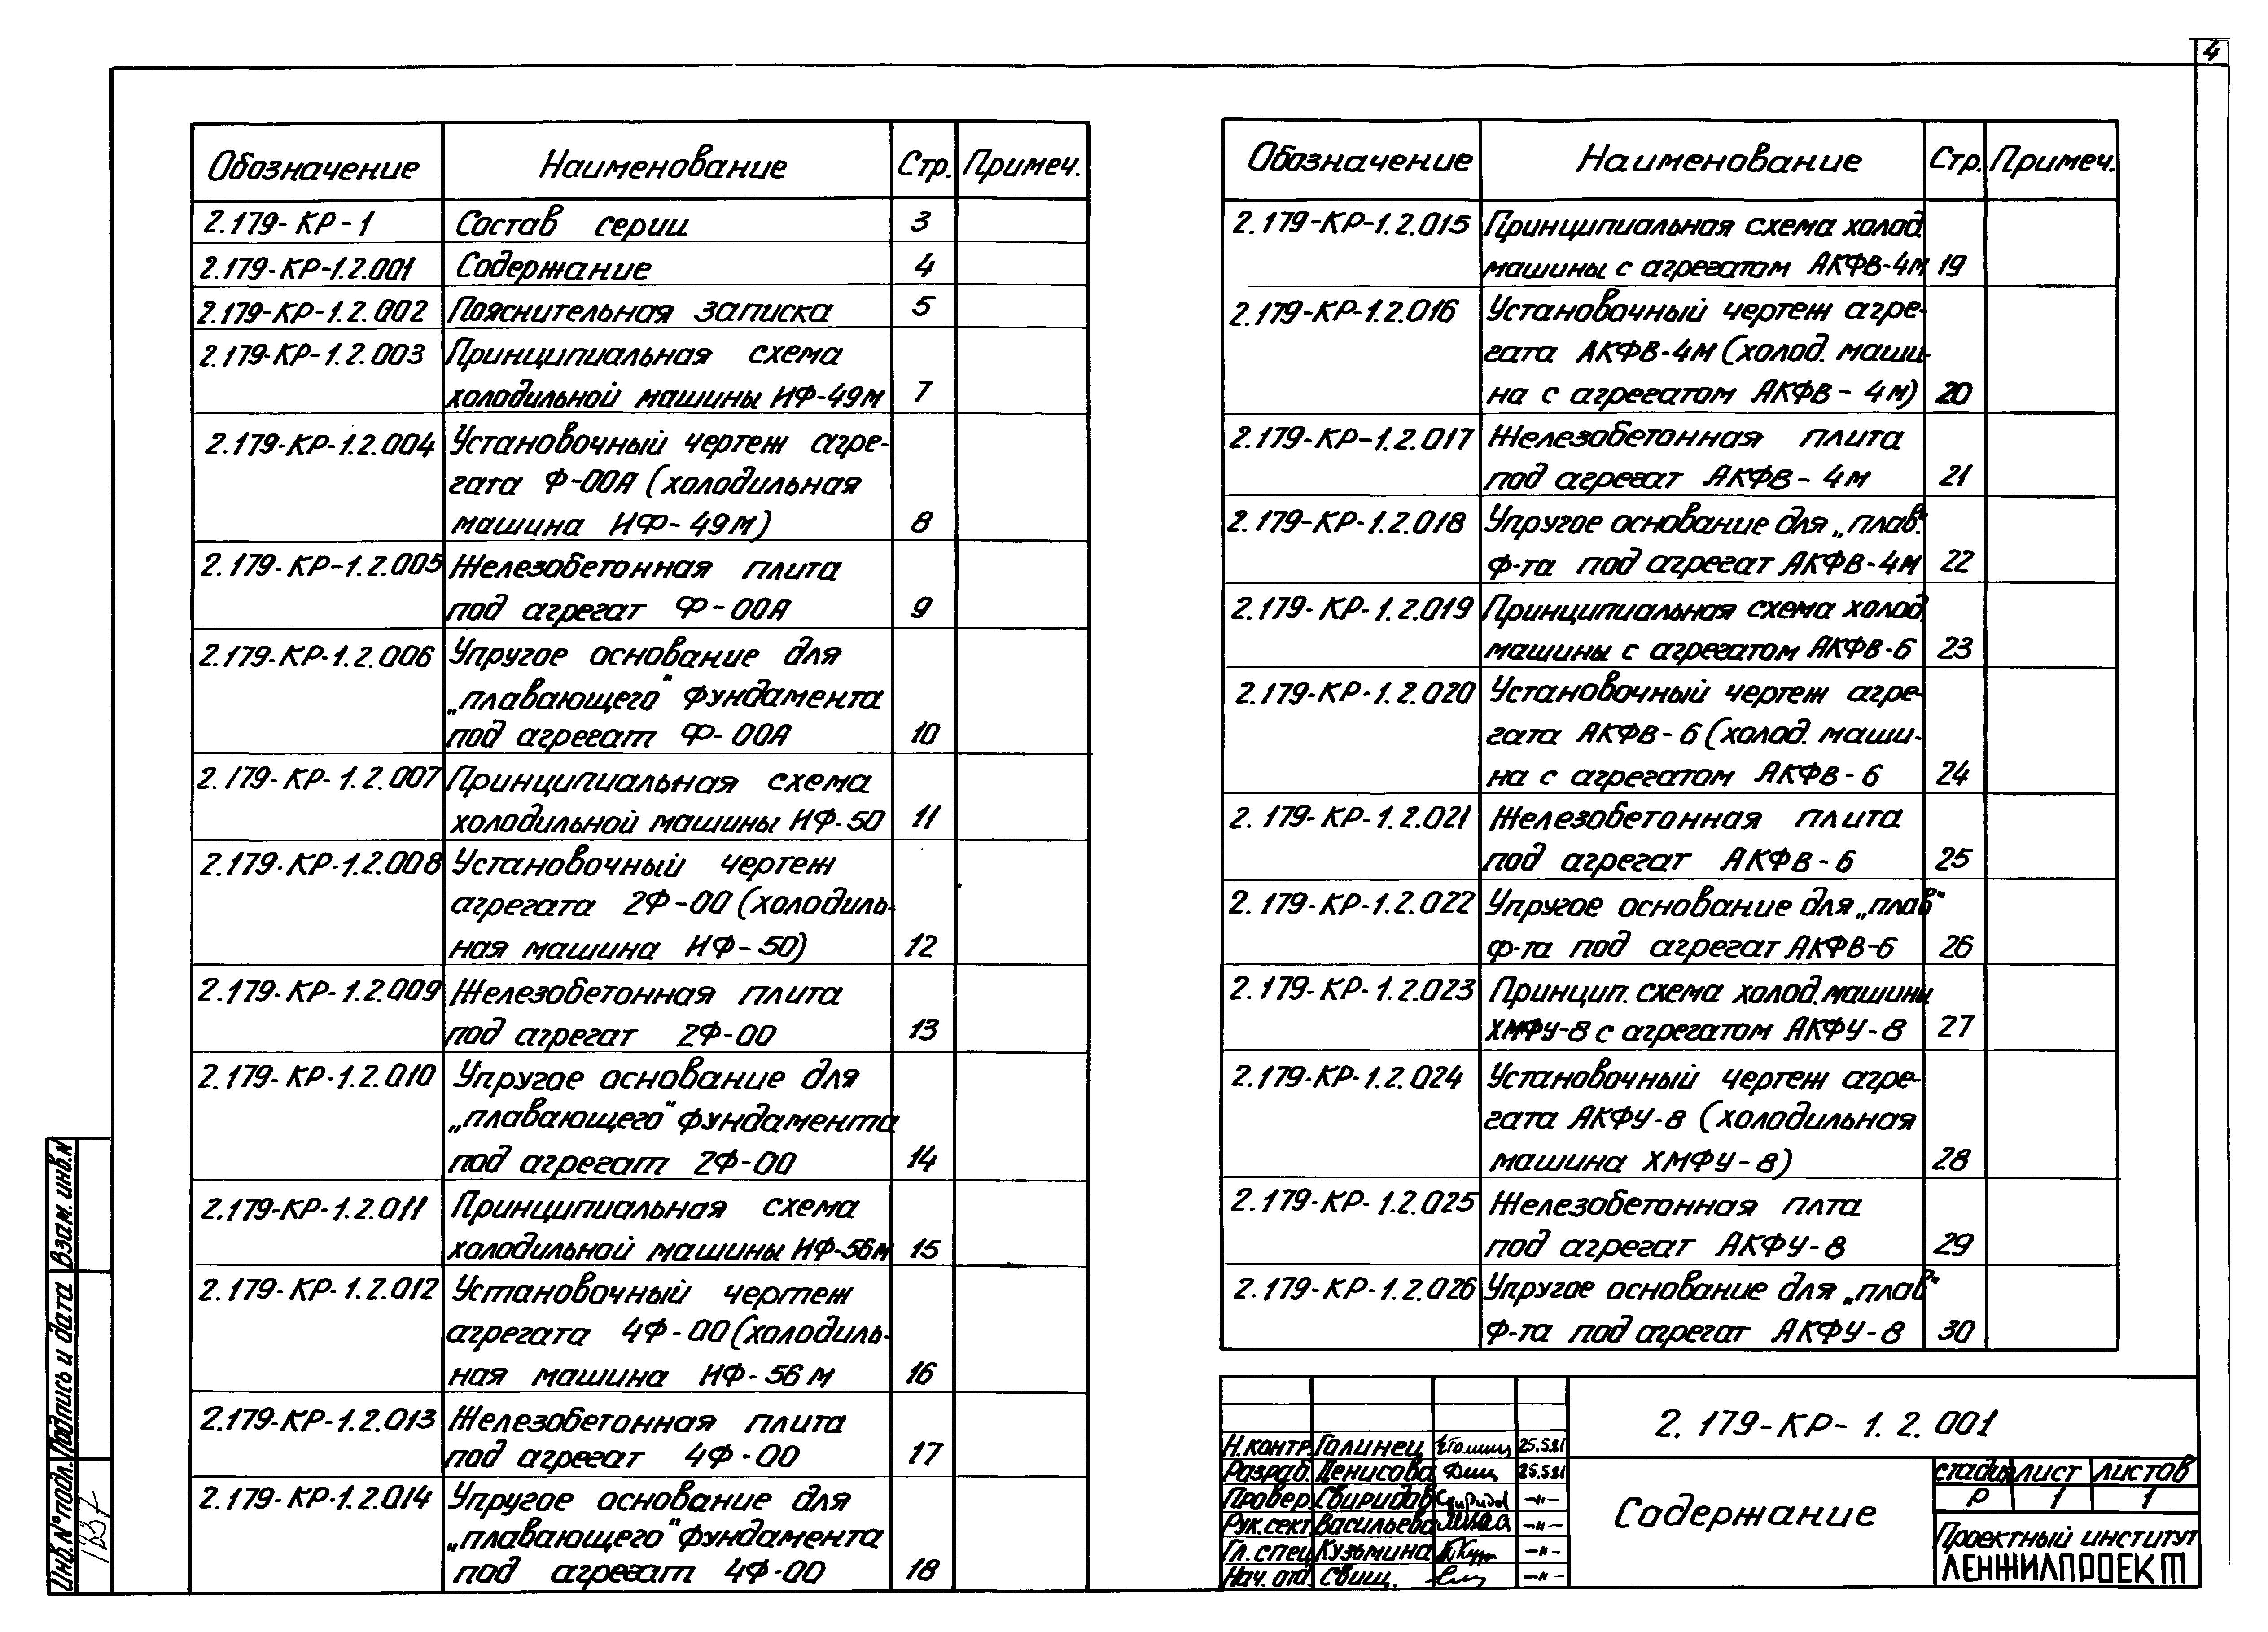 4
Обозначение Наименование Стр. Примеч.
2.179-КР-1 Состав серии 3
2.179-КР-1.2.001 Содержание 4
2.179-КР-1.2.002 Пояснительная записка 5
2.179-КР-1.2.003 Принципиальная схема
холодильной машины ИФ-49м 7
2.179-КР-1.2.004 Установочный чертеж агре-
гата Ф-00А (холодильная
машина ИФ-49м) 8
2.179-КР-1.2.005 Железобетонная плита
под агрегат Ф-00А 9
2.179-КР-1.2.006 Упругое основание для
„плавающего“ фундамента
под агрегат Ф-00А 10
2.179-КР-1.2.007 Принципиальная схема
холодильной машины ИФ-50 11
2.179-КР-1.2.008 Установочный чертеж
агрегата 2Ф-00 (холодиль-
ная машина ИФ-50) 12
2.179-КР-1.2.009 Железобетонная плита
под агрегат 2Ф-00 13
2.179-КР-1.2.010 Упругое основание для
„плавающего“ фундамента
под агрегат 2Ф-00 14
2.179-КР-1.2.011 Принципиальная схема
холодильной машины ИФ-56м 15
2.179-КР-1.2.012 Установочный чертеж
агрегата 4Ф-00 (холодиль-
ная машина ИФ-56м 16
2.179-КР-1.2.013 Железобетонная плита
под агрегат 4Ф-00 17
2.179-КР-1.2.014 Упругое основание для
„плавающего“ фундамента
под агрегат 4Ф-00 18
Обозначение Наименование Стр. Примеч.
2.179-КР-1.2.015 Принципиальная схема холод.
машины с агрегатом АКФВ-4м 19
2.179-КР-1.2.016 Установочный чертеж агре-
гата АКФВ-4м (холод. маши-
на с агрегатом АКФВ-4м) 20
2.179-КР-1.2.017 Железобетонная плита
под агрегат АКФВ-4м 21
2.179-КР-1.2.018 Упругое основание для „плав.“
ф-та под агрегат АКФВ-4м 22
2.179-КР-1.2.019 Принципиальная схема холод.
машины с агрегатом АКФВ-6 23
2.179-КР-1.2.020 Установочный чертеж агре-
гата АКФВ-6 (холод. маши-
на с агрегатом АКФВ-6 24
2.179-КР-1.2.021 Железобетонная плита
под агрегат АКФВ-6 25
2.179-КР-1.2.022 Упругое основание для „плав“
ф-та под агрегат АКФВ-6 26
2.179-КР-1.2.023 Принцип. схема холод. машины
ХМФУ-8 с агрегатом АКФУ-8 27
2.179-КР-1.2.024 Установочный чертеж агре-
гата АКФУ-8 (холодильная
машина ХМФУ-8) 28
2.179-КР-1.2.025 Железобетонная плта
под агрегат АКФУ-8 29
2.179-КР-1.2.026 Упругое основание для „плав“
ф-та под агрегат АКФУ-8 30
2.179-КР-1.2.001
Н.контр. Галинец 25.5.81
Разраб. Денисова 25.5.81
Провер. Свиридов Свиридов —"—
Рук.сект Васильева —"—
Гл.спец Кузьмина —"—
Нач.отд Свищ. —"—
Содержание
стадия лист листов
Р 1 1
Проектный институт
ЛЕНЖИЛПРОЕКТ
Взам. инв.№
Подпись и дата
Инв.№ подл.
1837